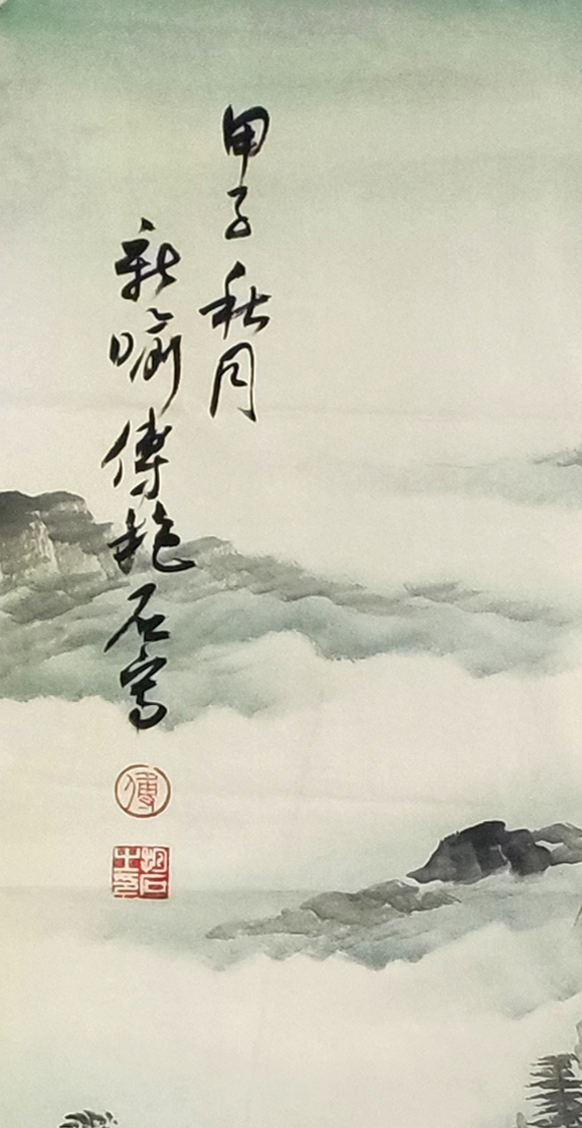 甲子秋月
新喻傅抱石寫
傅
抱石之印